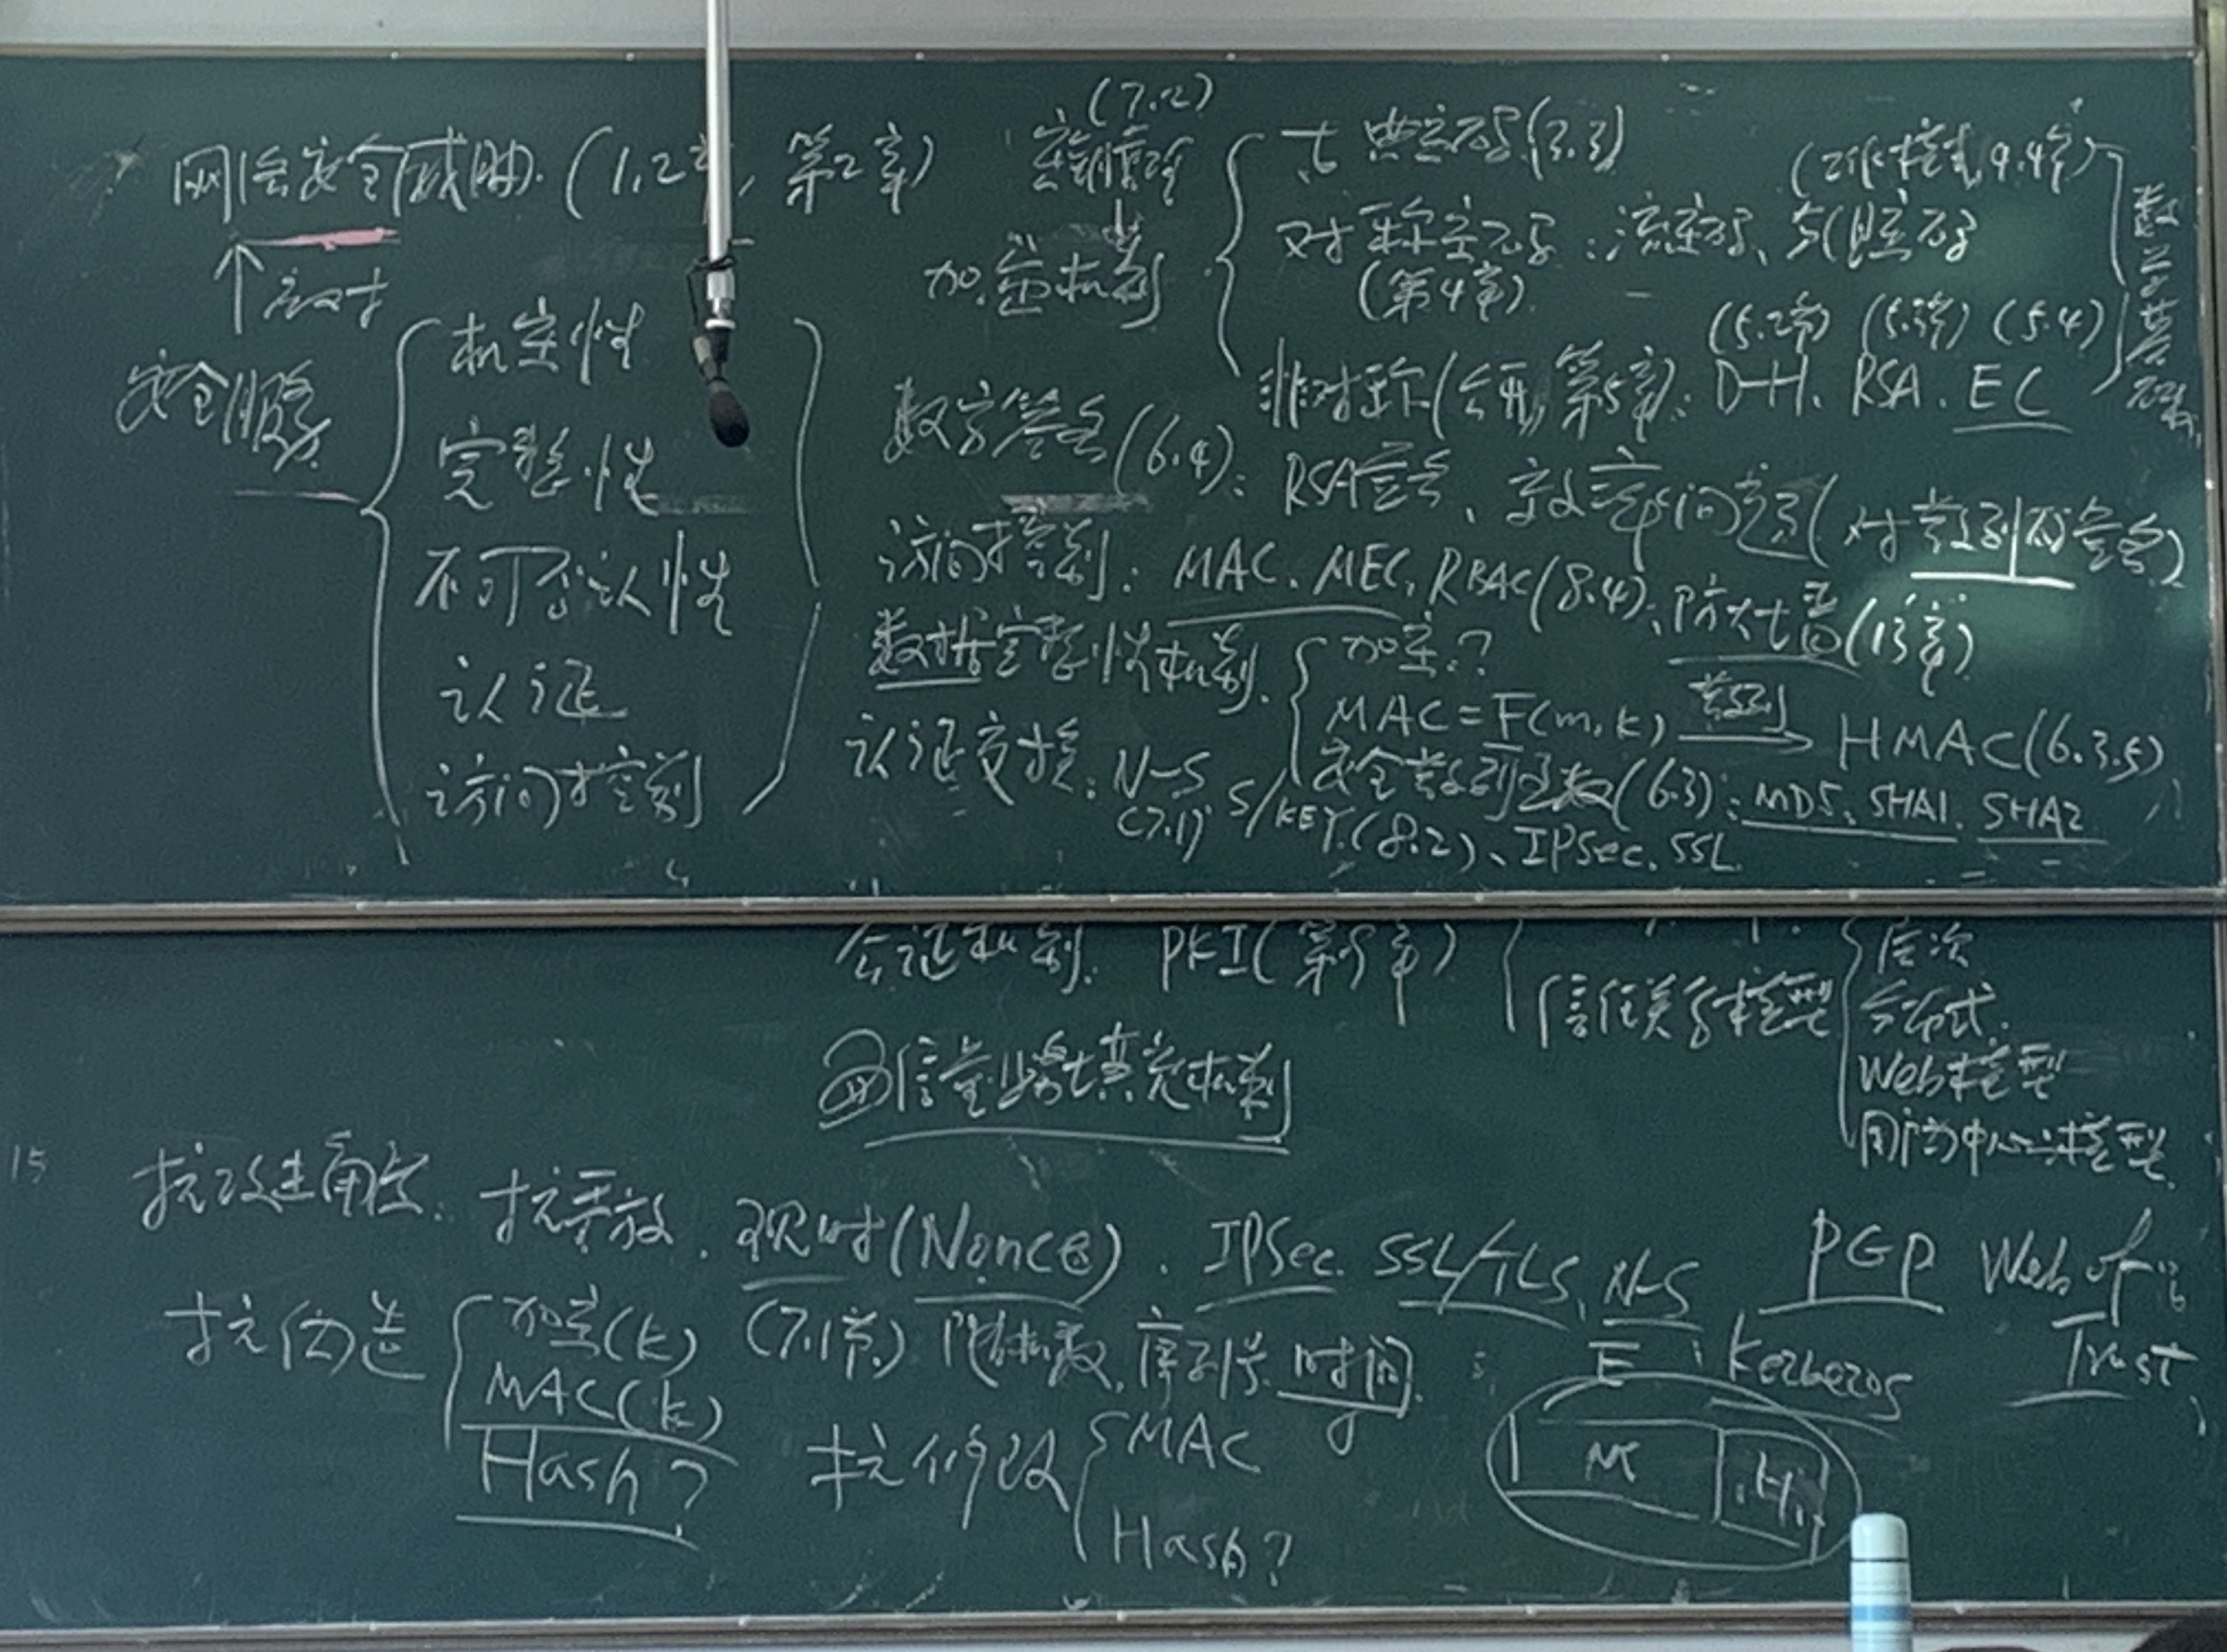 网络安全威胁. (1.2节, 第2章)
应对
安全服务
机密性
完整性
不可否认性
认证
访问控制
(7.2)
密钥管理
加密机制
古典密码(3.3)
(工作模式, 4.4节)
对称密码: 流密码、分组密码
(第4章)
(5.2节) (5.3节) (5.4)
非对称(公钥, 第5章): D-H、RSA、EC
数学基础
数字签名(6.4): RSA签名、效率问题(对散列码签名)
访问控制: MAC、MEC, RBAC(8.4)、防火墙(13章)
数据完整性机制.
加密?
MAC=F(m,k) 散列 HMAC(6.3.5)
安全散列函数(6.3): MD5、SHA1、SHA2
认证交换: N-S
(7.1) S/KEY(8.2)、IPSec、SSL
公证机制. PKI(第9章)
信任关系模型
层次
分布式.
Web模型
用户为中心模型
通信业务填充机制
15
抗攻击角度: 抗重放. 现时(Nonce). IPSec. SSL/TLS, N-S PGP Web of
Trust
(7.1节) 随机数, 序列号. 时间. E Kerberos
抗伪造
加密(k)
MAC(k)
Hash?
抗修改
MAC
Hash?
M H